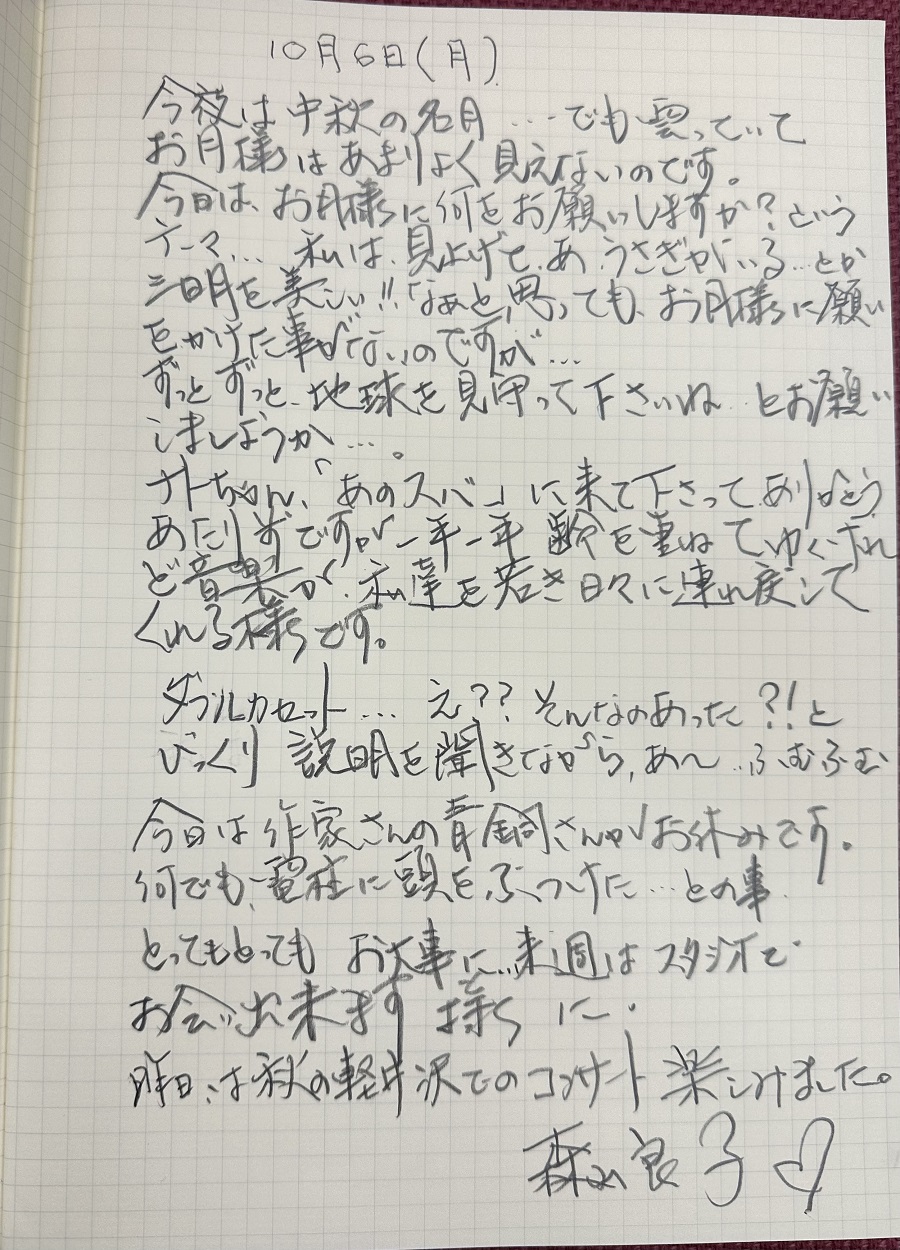 10月6日(月)
今夜は中秋の名月…でも雲っていて
お月様はあまりよく見えないのです。
今日は、お月様に何をお願いしますか?という
テーマ… 私は、見上げて、あ、うさぎがいる…とか
三日月を美しい!!なぁと思っても、お月様に願い
をかけた事がないのですが…
ずっとずっと、地球を見守って下さいね…とお願い
しましょうか…。
ナトちゃん、「あのスバ」に来て下さってありがとう
あたりまずですが一年一年 齢を重ねてゆくけれ
ど音楽が、私達を若き日々に連れ戻して
くれる様です。
ダブルカセット… え??そんなのあった?!と
びっくり 説明を聞きながら、あ〜…ふむふむ
今日は作家さんの青銅さんがお休みです。
何でも、電柱に頭をぶつけた…との事
とってもとっても お大事に…来週はスタジオで
お会い出来ます様に。
昨日は秋の軽井沢でのコンサート楽しみました。
森山良子♡